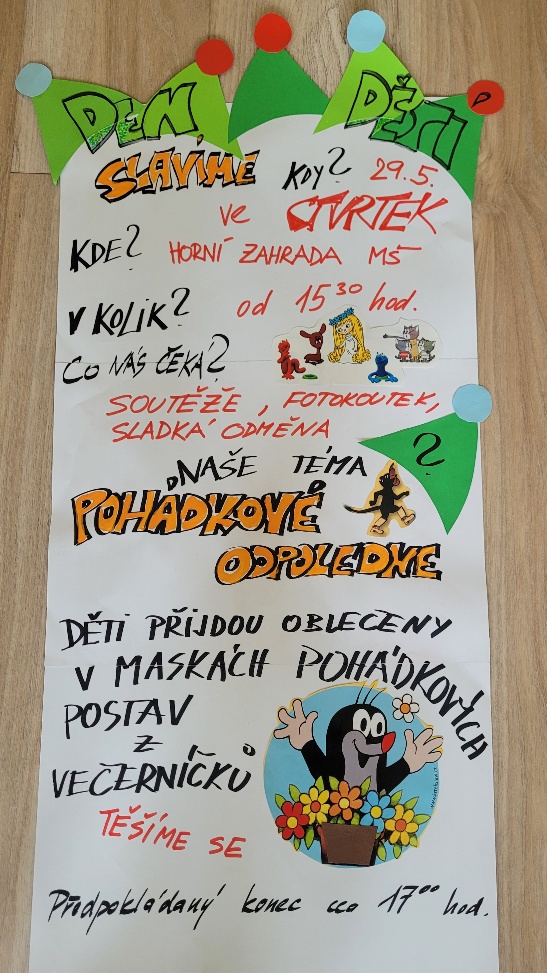 DEN DĚTÍ
SLAVÍME KDY? 29.5.
ve ČTVRTEK
KDE? HORNÍ ZAHRADA MŠ
V KOLIK? od 15³⁰ hod.
CO NÁS ČEKÁ?
SOUTĚŽE, FOTOKOUTEK,
SLADKÁ ODMĚNA
?
NAŠE TÉMA
POHÁDKOVÉ
ODPOLEDNE
DĚTI PŘIJDOU OBLEČENY
V MASKÁCH POHÁDKOVÝCH
POSTAV
Z
VEČERNÍČKŮ
TĚŠÍME SE
Předpokládaný konec 17⁰⁰ hod.